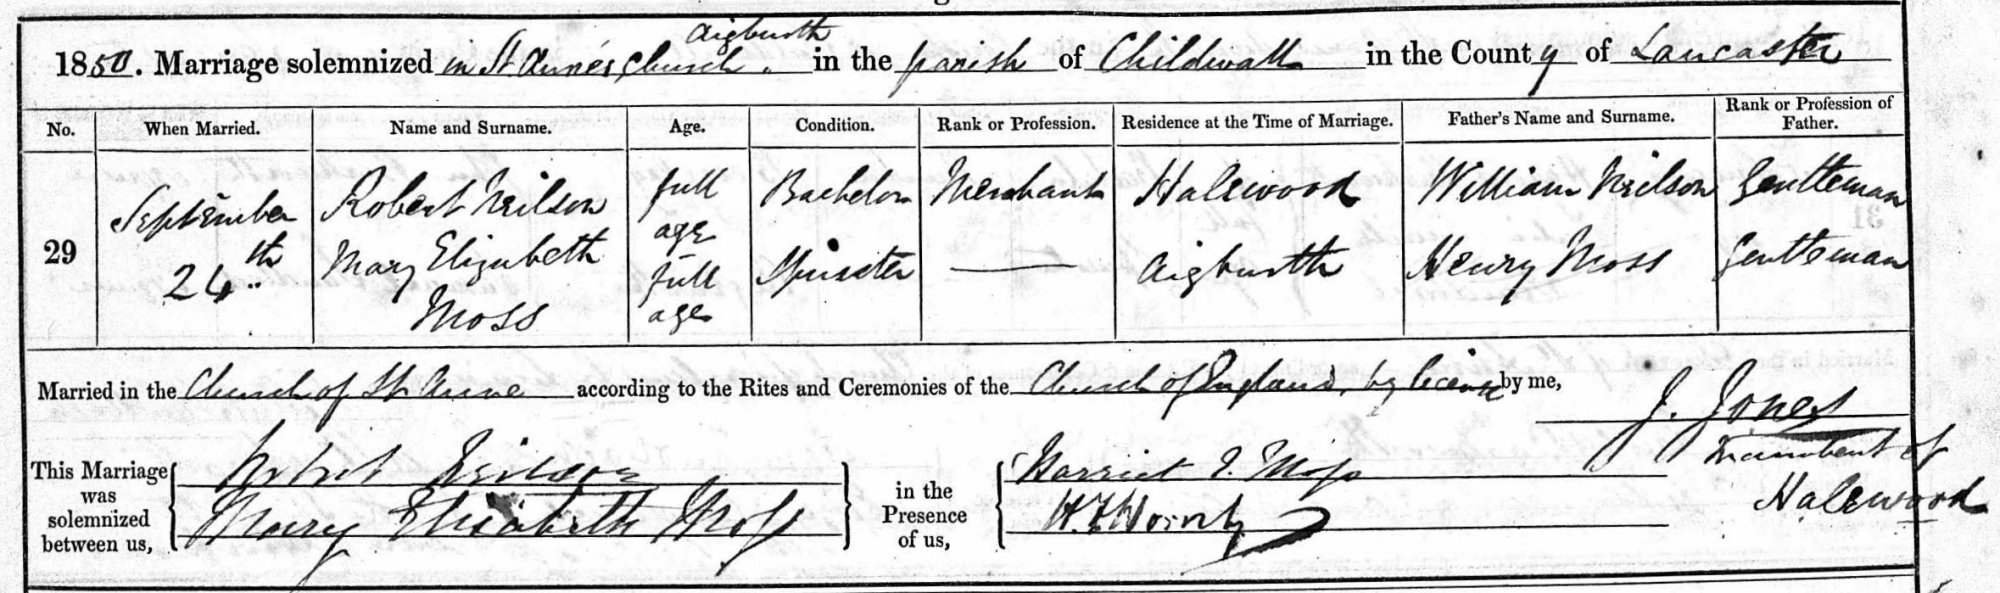 Aigburth
1850. Marriage solemnized in St Anne's Church in the parish of Childwall in the County of Lancaster
No. When Married. Name and Surname. Age. Condition. Rank or Profession. Residence at the Time of Marriage. Father's Name and Surname. Rank or Profession of Father.
29 September 24th Robert Neilson full age Bachelor Merchant Halewood William Neilson Gentleman
Mary Elizabeth Moss full age Spinster — Aigburth Henry Moss Gentleman
Married in the Church of St Anne according to the Rites and Ceremonies of the Church of England, by licence by me,
J. Jones
Incumbent of
Halewood
This Marriage was solemnized between us,
Robert Neilson
Mary Elizabeth Moss
in the Presence of us,
Harriet J. Moss
H. F. Hornby